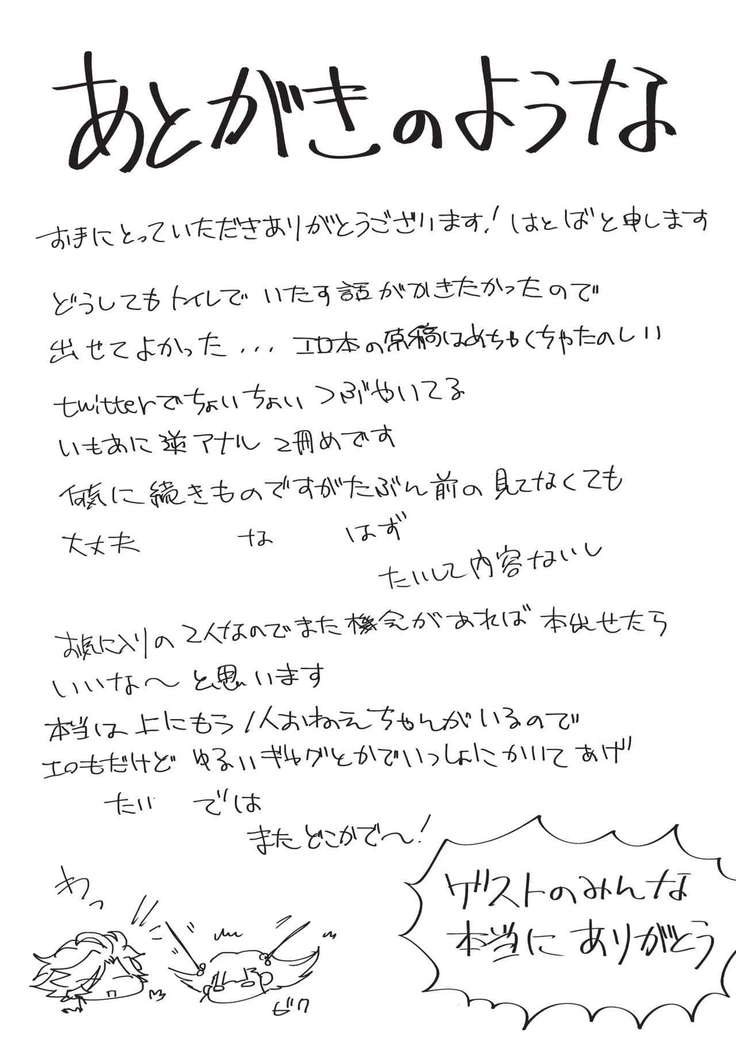 あとがきのような
お手にとっていただきありがとうございます! はとばと申します
どうしてもトイレでいたす話がかきたかったので
出せてよかった... エロ本の原稿はめちゃくちゃたのしい
twitterでちょいちょいつぶやいてる
いもあに逆アナル 2冊めです
何気に続きものですがたぶん前の見てなくても
大丈夫 な はず
たいして内容ないし
お気に入りの2人なのでまた機会があれば本出せたら
いいな〜と思います
本当は上にもう1人おねえちゃんがいるので
エロもだけどゆるいギャグとかでいっしょにかいてあげ
たい では
またどこかで〜!
わっ
ビク
ゲストのみんな
本当にありがとう